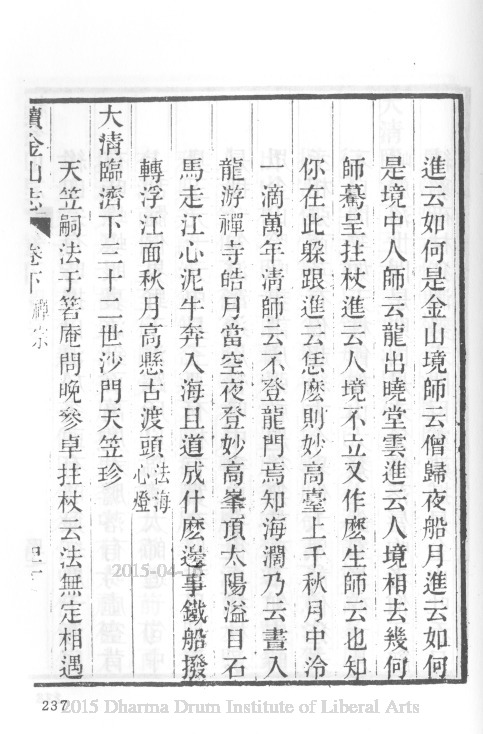 進云如何是金山境師云僧歸夜船月進云如何
是境中人師云龍出曉堂雲進云人境相去幾何
師驀呈拄杖進云人境不立又作麽生師云也知
你在此躲跟進云恁麽則妙高臺上千秋月中泠
一滴萬年清師云不登龍門焉知海濶乃云晝入
龍游禪寺皓月當空夜登妙高峯頂太陽溢目石
馬走江心泥牛奔入海且道成什麽邊事鐵船撥
轉浮江面秋月高懸古渡頭法海心燈
大清臨濟下三十二世沙門天笠珍
天笠嗣法于箬庵問晚參卓拄杖云法無定相遇
續金山志 卷下 禪宗
2015-04-
237
2015 Dharma Drum Institute of Liberal Arts